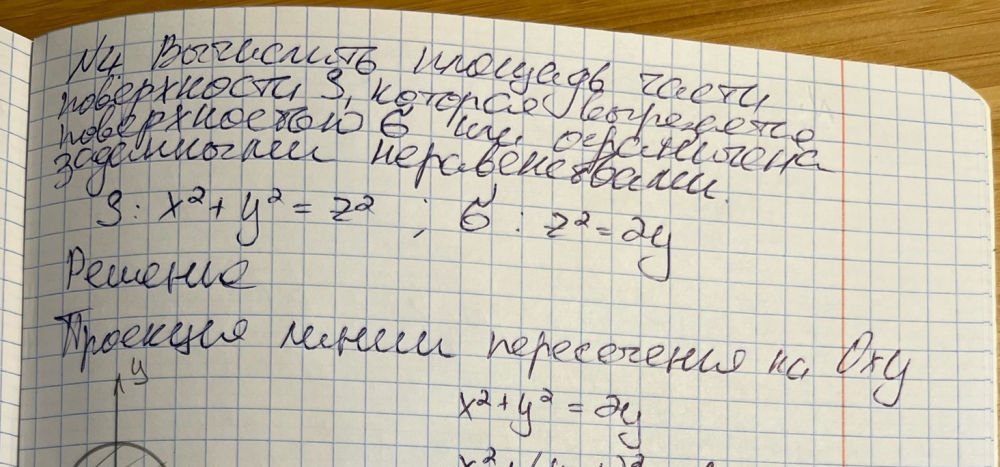 №4 Вычислить площадь части
поверхности S, которая вырезается
поверхностью б или ограничена
заданными неравенствами.
S: x² + y² = z² ; б : z² = 2y
Решение
Проекция линии пересечения на Oxy
y
x² + y² = 2y